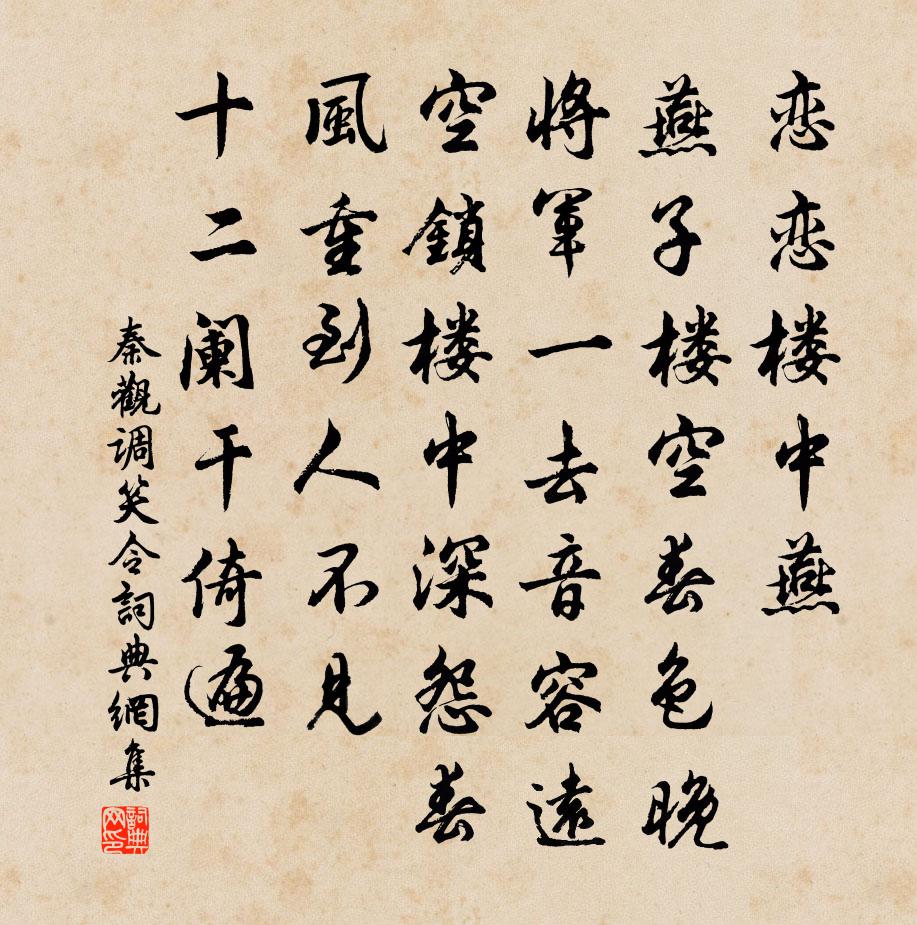 恋恋楼中燕
燕子楼空春色晚
将軍一去音容遠
空鎖楼中深怨春
風重到人不見
十二阑干倚遍
秦觀调笑令詞典網集
詞典网印